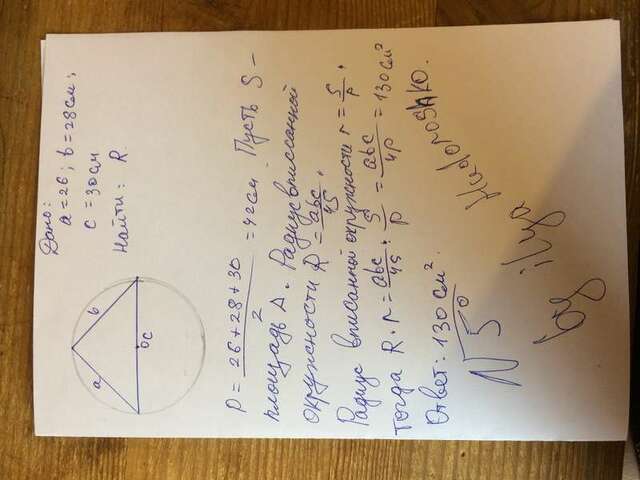 Дано:
a = 26; b = 28см;
c = 30см
Найти: R.
a
b
o c
p = 26+28+30 / 2 = 42см Пусть S –
площадь Δ. Радиус вписсанной
окружности R = abc/4S.
Радиус вписанной окружности r = S/p.
тогда R · r = abc/4S · S/p = abc/4p = 130см²
Ответ: 130 см².
√5°
by ilya Hudoroshko.